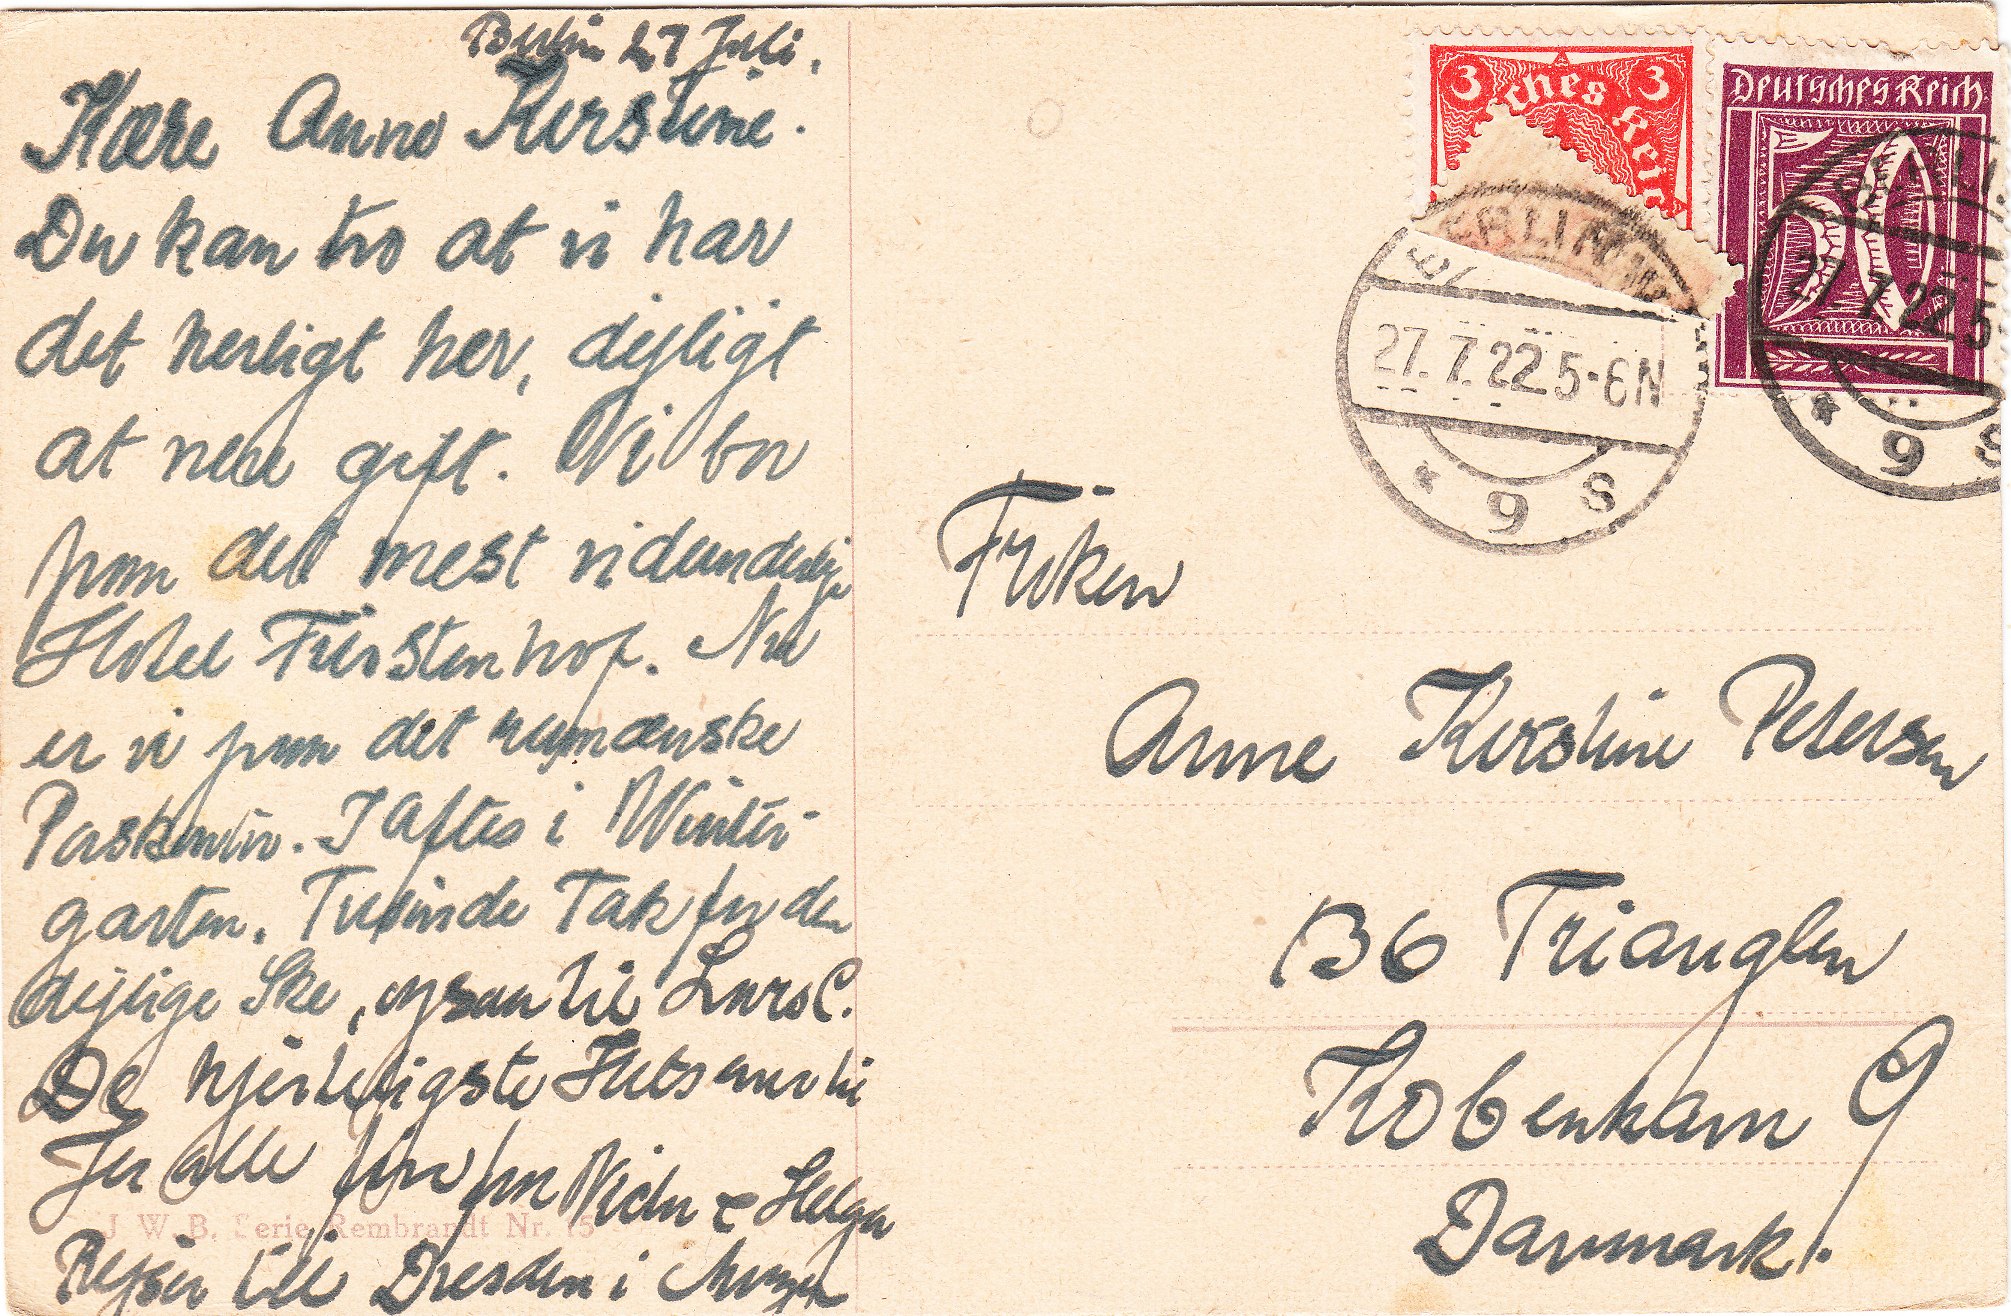 Berlin 27 Juli.
Kære Anne Kirstine.
Du kan tro at vi har
det herligt her, dejligt
at være gift. Vi bor
paa det mest vidunderlige
Hotel Fürstenhof. Nu
er vi paa det rumænske
I aftes i Winter
garten. Tusinde Tak for den
dejlige Ske, ogsaa til Lars C.
De hjerteligste Hilsener til
Jer alle fra & Helga
Rejser til Dresden i Morgen
J. W. B. Serie Rembrandt Nr. 15
3 ches Rei 3
Deutsches Reich
50
BERLIN
27.7.22.5-6N
* 9 S
BERLIN
27.7.22.5
* 9 S
Frøken
Anne Kirstine Petersen
136 Trianglen
København Ø
Danmark.